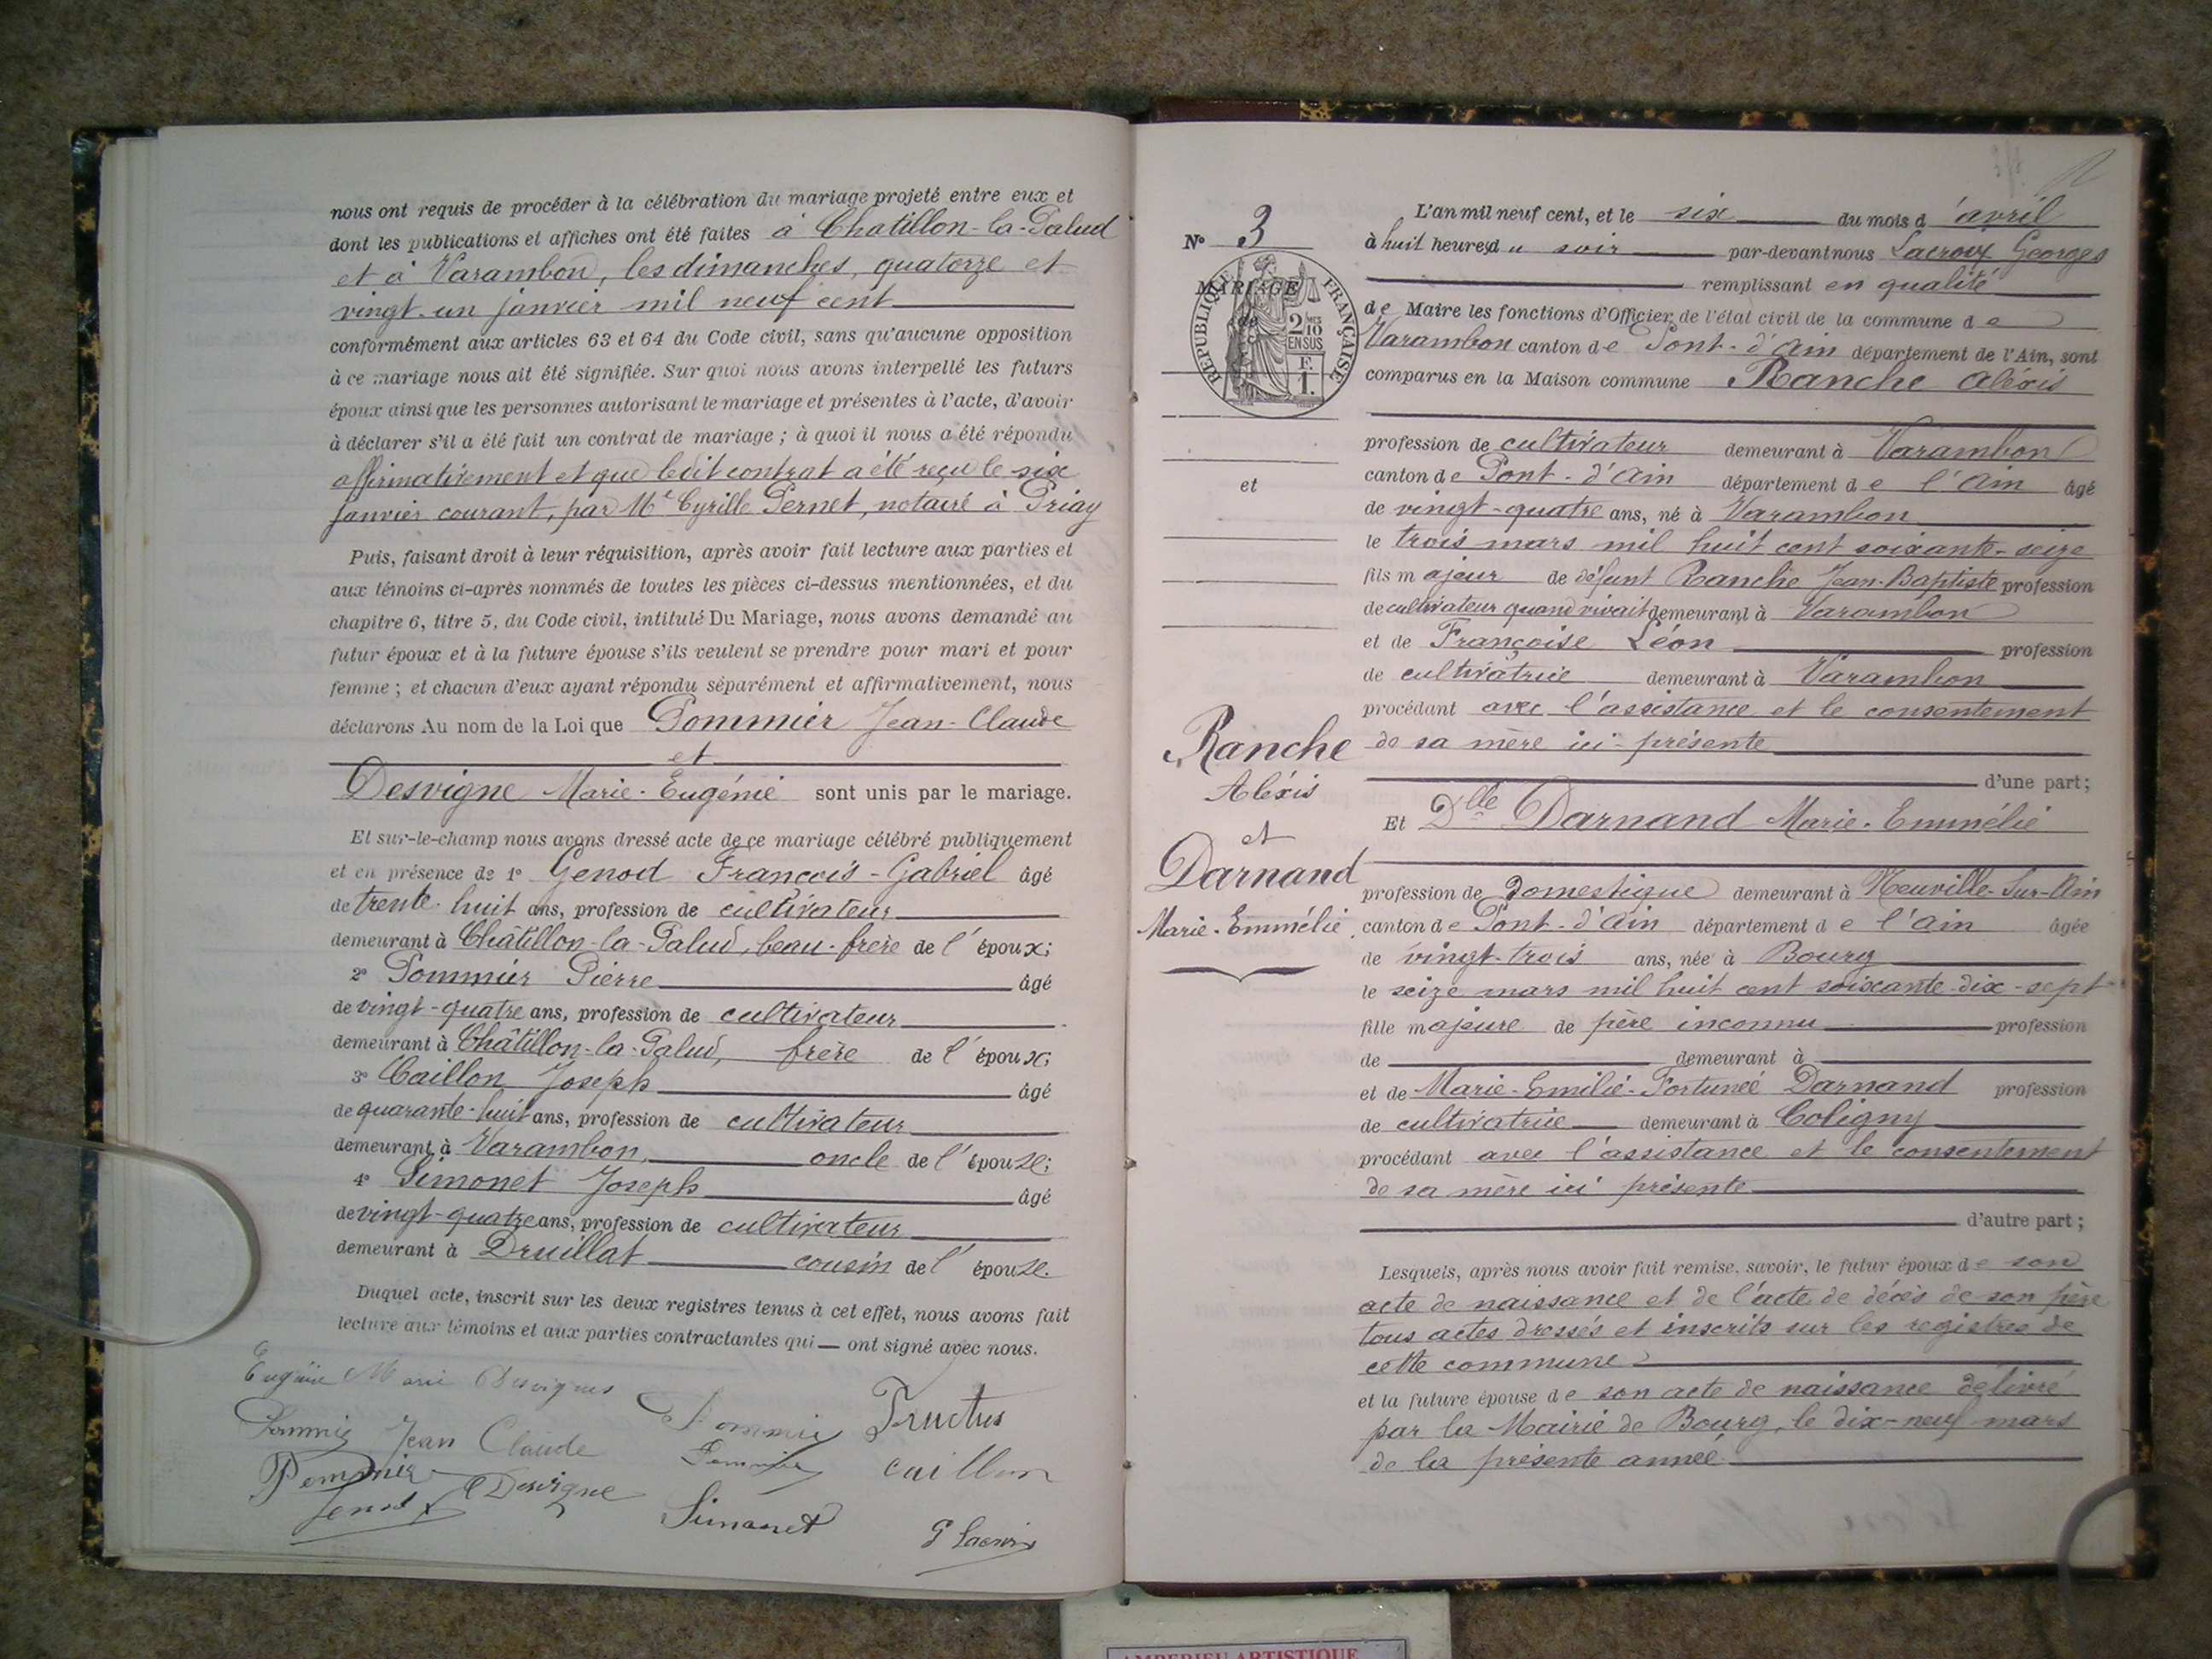 nous ont requis de procéder à la célébration du mariage projeté entre eux et
dont les publications et affiches ont été faites à Chatillon-la-Palud
et à Varambon, les dimanches, quatorze et
vingt-un janvier mil neuf cent
conformément aux articles 63 et 64 du Code civil, sans qu'aucune opposition
à ce mariage nous ait été signifiée. Sur quoi nous avons interpellé les futurs
époux ainsi que les personnes autorisant le mariage et présentes à l'acte, d'avoir
à déclarer s'il a été fait un contrat de mariage ; à quoi il nous a été répondu
affirmativement et que ledit contrat a été reçu le six
janvier courant, par Me Cyrille Pernet, notaire à Priay
Puis, faisant droit à leur réquisition, après avoir fait lecture aux parties et
aux témoins ci-après nommés de toutes les pièces ci-dessus mentionnées, et du
chapitre 6, titre 5, du Code civil, intitulé Du Mariage, nous avons demandé au
futur époux et à la future épouse s'ils veulent se prendre pour mari et pour
femme ; et chacun d'eux ayant répondu séparément et affirmativement, nous
déclarons Au nom de la Loi que Pommier Jean-Claude
et
Desvigne Marie-Eugénie sont unis par le mariage.
Et sur-le-champ nous avons dressé acte de ce mariage célébré publiquement
et en présence de 1° Genod François-Gabriel âgé
de trente-huit ans, profession de cultivateur
demeurant à Châtillon-la-Palud, beau-frère de l'époux;
2° Pommier Pierre âgé
de vingt-quatre ans, profession de cultivateur
demeurant à Châtillon-la-Palud, frère de l'époux;
3° Caillon Joseph âgé
de quarante-huit ans, profession de cultivateur
demeurant à Varambon, oncle de l'épouse;
4° Simonet Joseph âgé
de vingt-quatre ans, profession de cultivateur
demeurant à Druillat cousin de l'épouse.
Duquel acte, inscrit sur les deux registres tenus à cet effet, nous avons fait
lecture aux témoins et aux parties contractantes qui ont signé avec nous.
Eugénie Marie Desvignes
Pommier Jean Claude Pommier Fructus
Pommier Desvigne Pommier Caillon
Genod Simonet G Lacroix
N° 3
MARIAGE
de
RÉPUBLIQUE FRANÇAISE
2 MES
10
EN SUS
F.
1.
et
Ranche
Aléxis
et
Darnand
Marie-Emmélie
L'an mil neuf cent, et le six du mois d'avril
à huit heures du soir par-devant nous Lacroix Georges
remplissant en qualité
de Maire les fonctions d'Officier de l'état civil de la commune de
Varambon canton de Pont-d'Ain département de l'Ain, sont
comparus en la Maison commune Ranche Aléxis
profession de cultivateur demeurant à Varambon
canton de Pont-d'Ain département de l'Ain âgé
de vingt-quatre ans, né à Varambon
le trois mars mil huit cent soixante-seize
fils majeur de défunt Ranche Jean-Baptiste profession
de cultivateur quand vivait demeurant à Varambon
et de Françoise Léon profession
de cultivatrice demeurant à Varambon
procédant avec l'assistance et le consentement
de sa mère ici présente
d'une part;
Et Dlle Darnand Marie-Emmélie
profession de domestique demeurant à Neuville-Sur-Ain
canton de Pont-d'Ain département de l'Ain âgée
de vingt-trois ans, née à Bourg
le seize mars mil huit cent soixante-dix-sept
fille majeure de père inconnu profession
de demeurant à
et de Marie-Emilie-Fortuneé Darnand profession
de cultivatrice demeurant à Coligny
procédant avec l'assistance et le consentement
de sa mère ici présente
d'autre part ;
Lesquels, après nous avoir fait remise, savoir, le futur époux de son
acte de naissance et de l'acte de décès de son père
tous actes dressés et inscrits sur les registres de
cette commune
et la future épouse de son acte de naissance délivré
par la Mairie de Bourg, le dix-neuf mars
de la présente année
AMBERIEU ARTISTIQUE